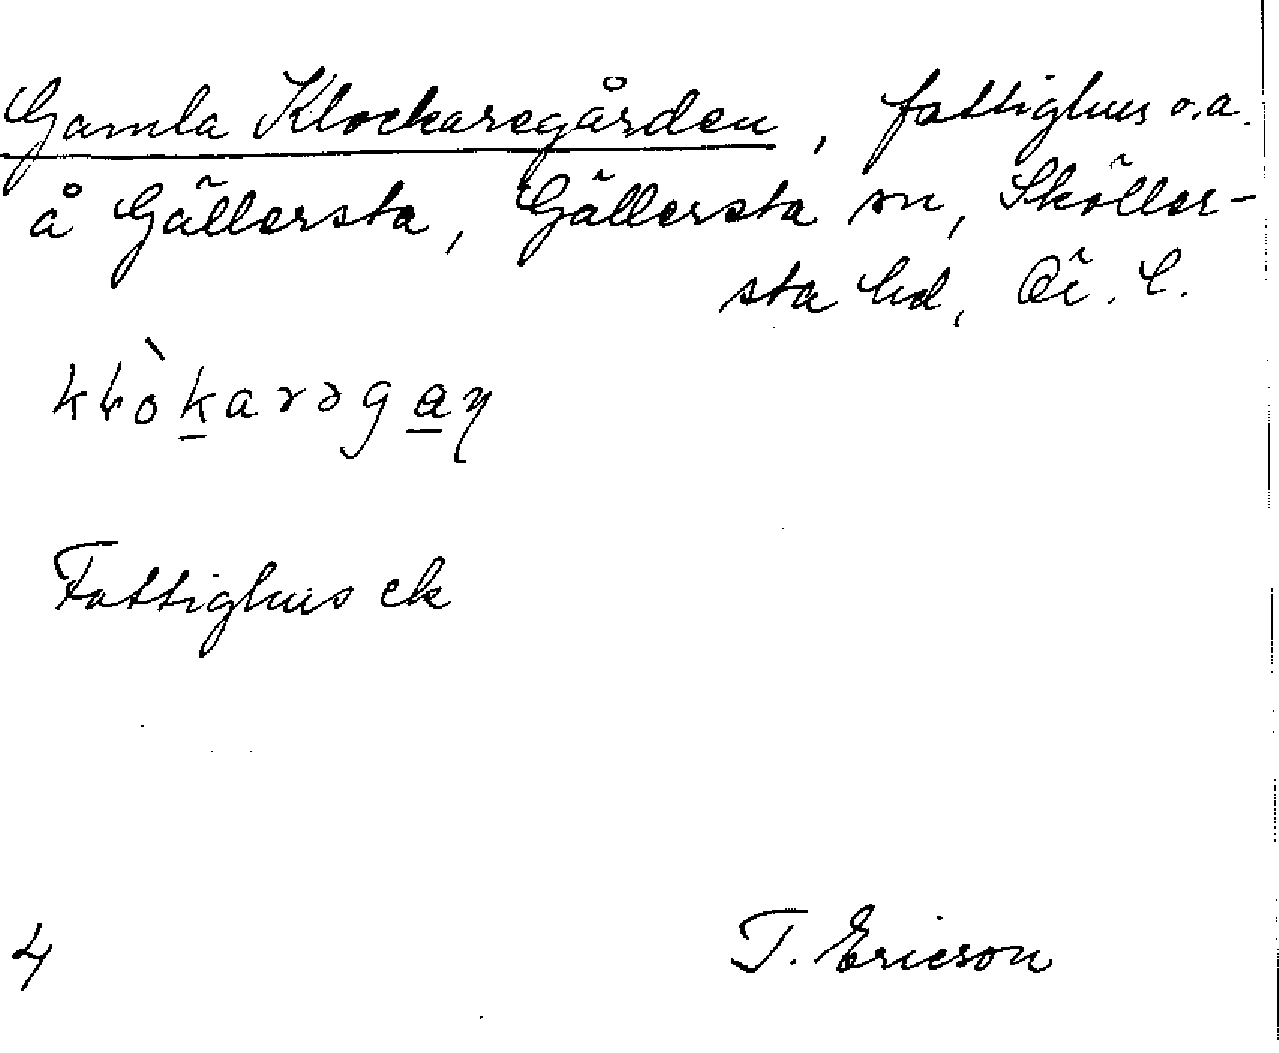 Gamla Klockaregården, fattighus o.a.
å Gällersta, Gällersta sn, Sköller-
sta hd, Ör. l.
kɫò̀k̲arəga̲ṇ
Fattighus ek
4
T. Ericson